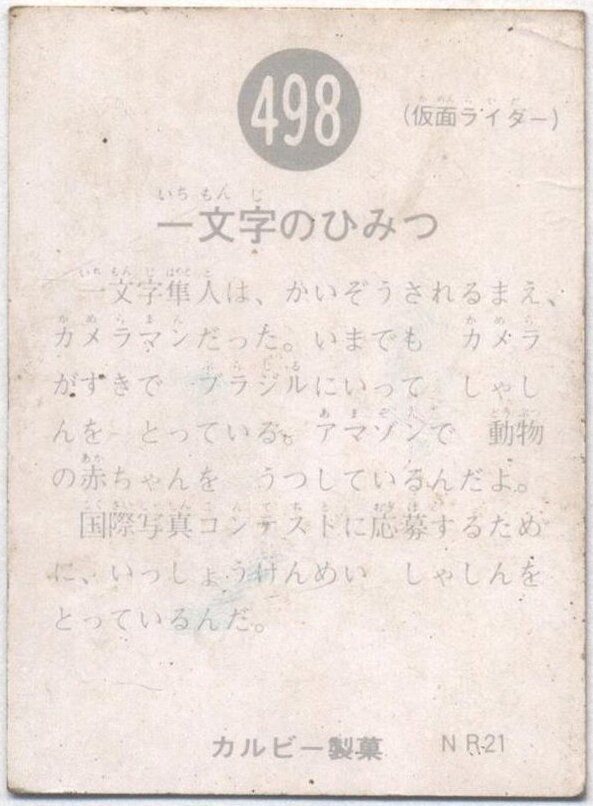 498
(仮面ライダー)
一文字のひみつ
一文字隼人は、かいぞうされるまえ、
カメラマンだった。いまでも カメラ
がすきで ブラジルにいって しゃし
んを とっている。アマゾンで 動物
の赤ちゃんを うつしているんだよ。
国際写真コンテストに応募するため
に、いっしょうけんめい しゃしんを
とっているんだ。
カルビー製菓 N R-21